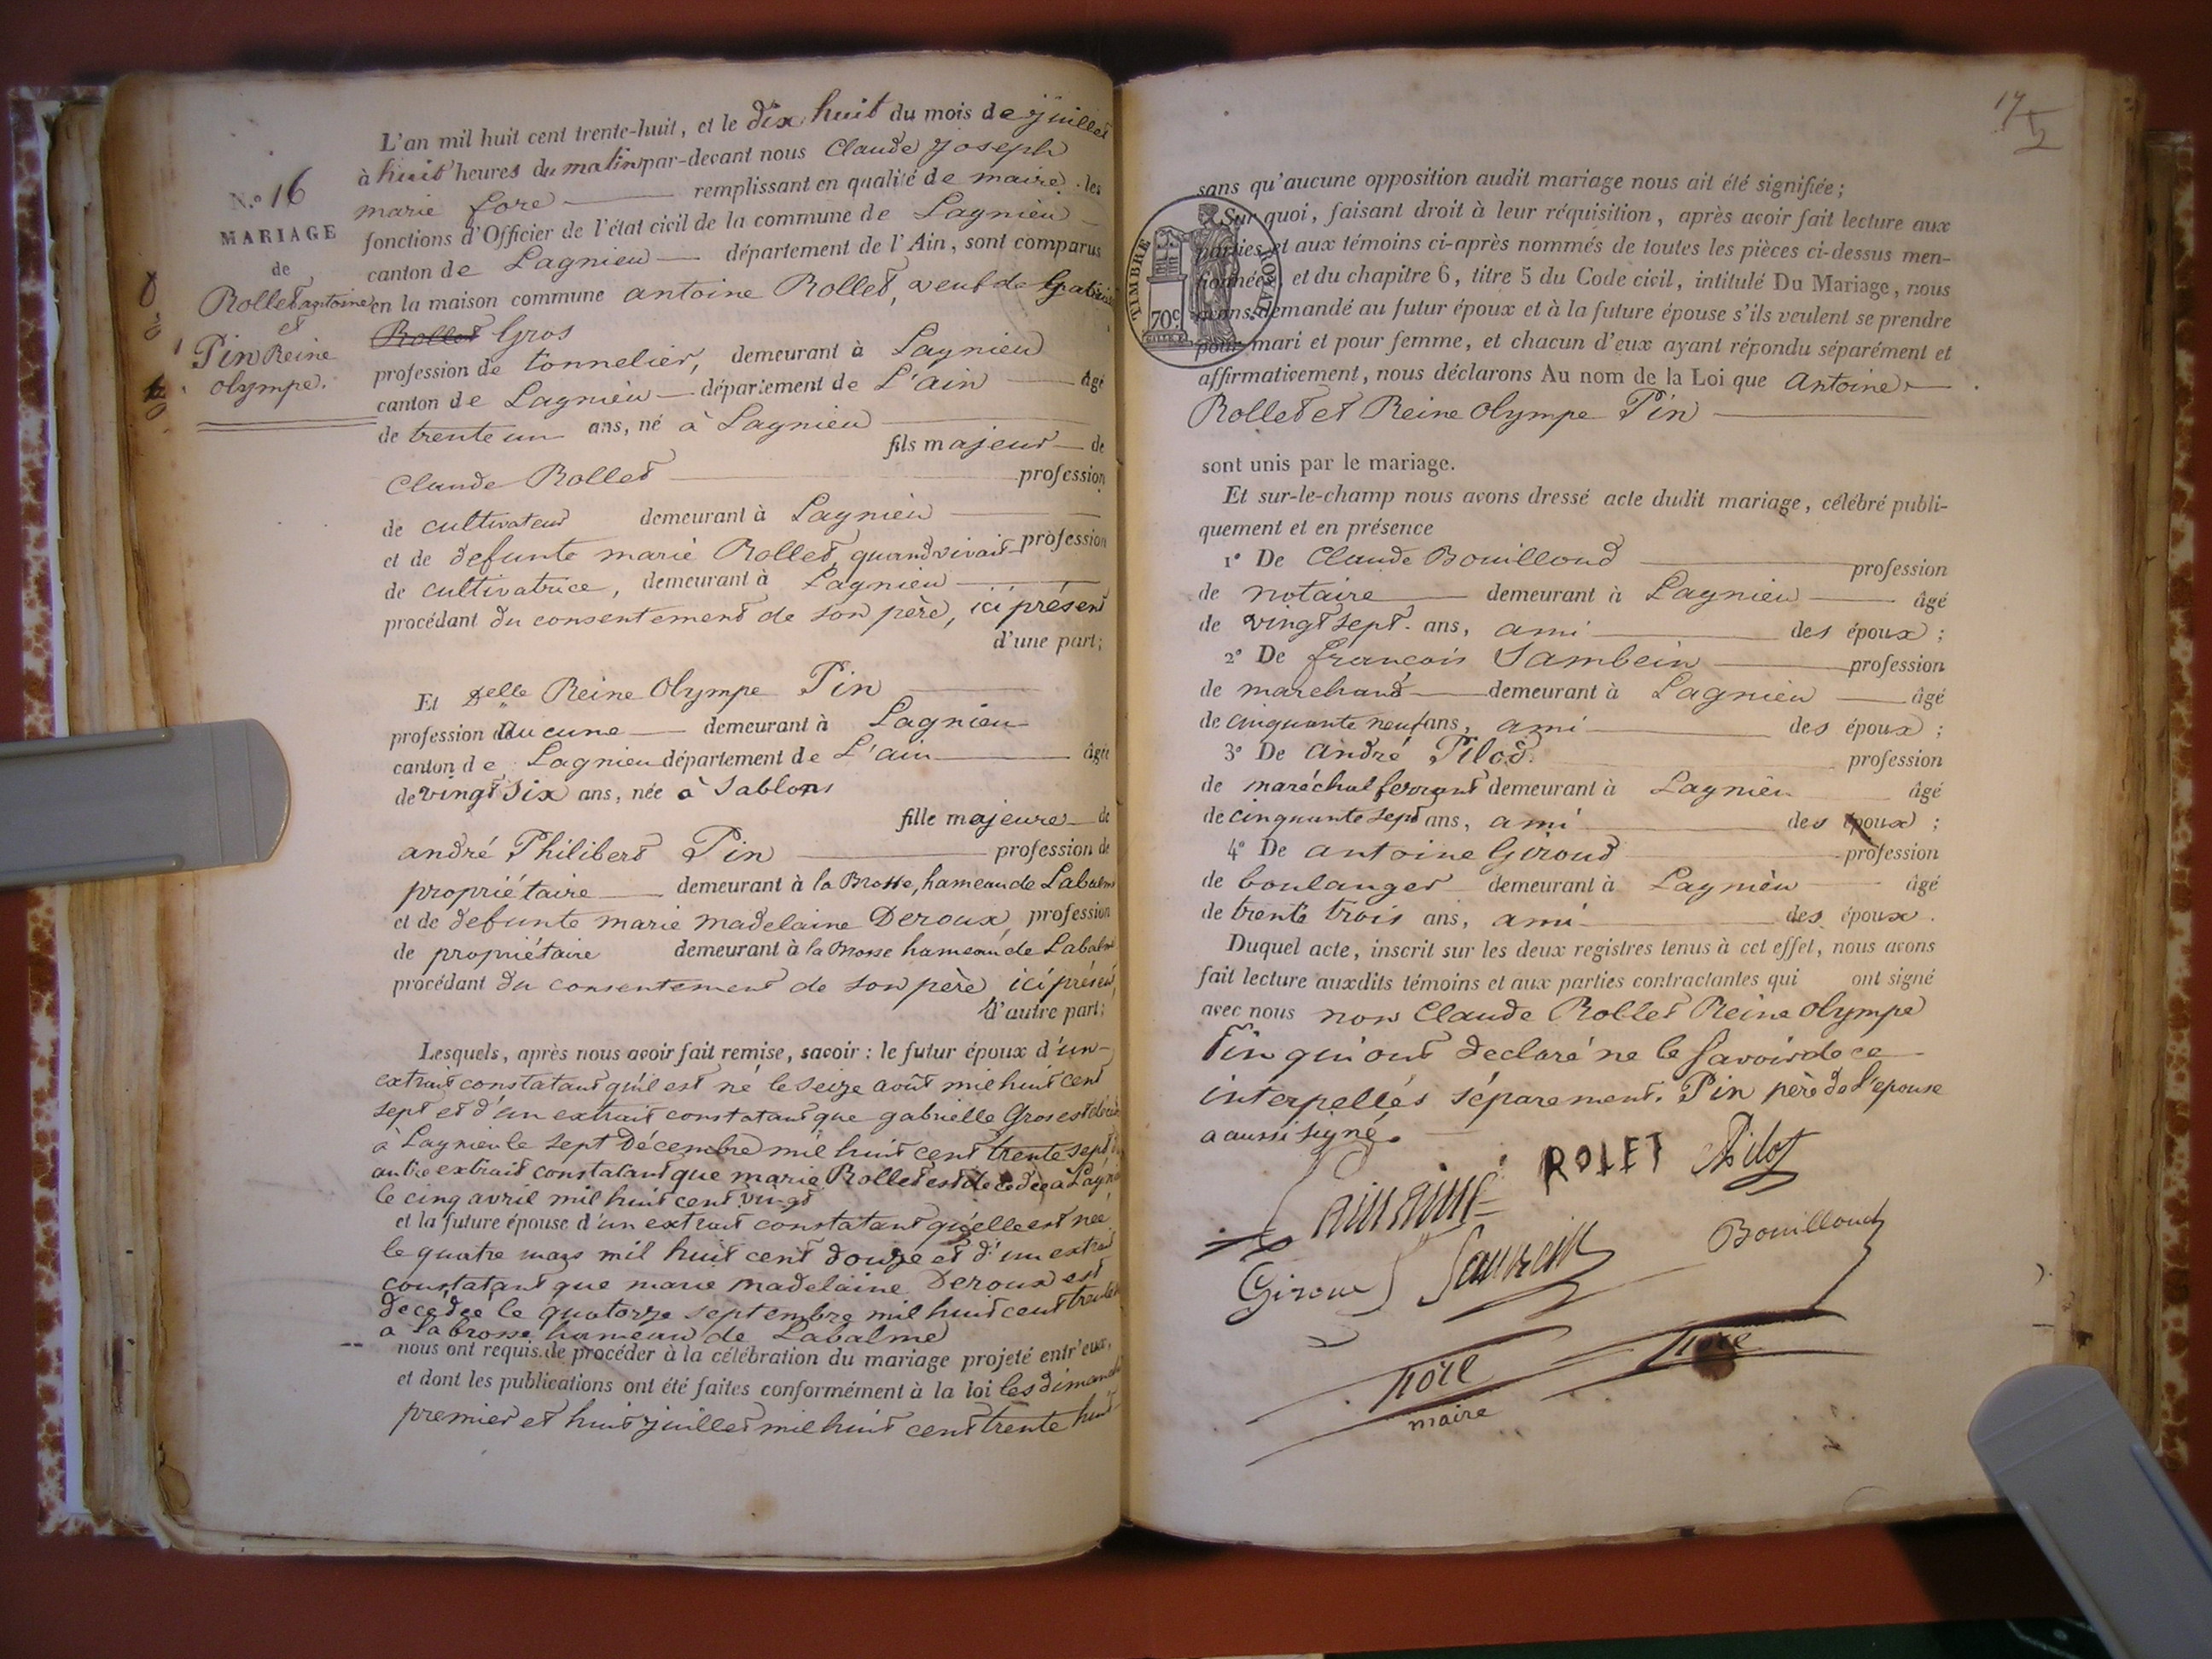 N.º 16
MARIAGE
de
Rollet antoine
et
Pin Reine
olympe.
L'an mil huit cent trente-huit, et le dix huit du mois de juillet
à huit heures du matin par-devant nous Claude Joseph
marie fore remplissant en qualité de maire les
fonctions d'Officier de l'état civil de la commune de Lagnieu
canton de Lagnieu département de l'Ain, sont comparus
en la maison commune antoine Rollet, veuf de
Rollet Gros
profession de tonnelier, demeurant à Lagnieu
canton de Lagnieu département de L'ain âgé
de trente un ans, né à Lagnieu
fils majeur de
Claude Rollet profession
de cultivateur demeurant à Lagnieu
et de defunte marie Rollet, quand vivait profession
de cultivatrice, demeurant à Lagnieu
procédant du consentement de son père, ici présent
d'une part;
Et Delle Reine Olympe Pin
profession d'aucune demeurant à Lagnieu
canton de Lagnieu département de L'ain âgée
de vingt six ans, née à Sablons
fille majeure de
andré Philibert Pin profession de
propriétaire demeurant à la Brosse, hameau de Labalme
et de defunte marie madelaine Deroux, profession
de propriétaire demeurant à la Brosse hameau de Labalme
procédant du consentement de son père ici présent
d'autre part;
Lesquels, après nous avoir fait remise, savoir: le futur époux d'un
extrait constatant qu'il est né le seize août mil huit cent
sept et d'un extrait constatant que gabrielle Gros est
à Lagnieu le sept Décembre mil huit cent trente sept,
autre extrait constatant que marie Rollet est décédée à
le cinq avril mil huit cent vingt
et la future épouse d'un extrait constatant qu'elle est née
le quatre mars mil huit cent douze et d'un extrait
constatant que marie madelaine Deroux est
décédée le quatorze septembre mil huit cent
a labrosse hameau de Labalme
nous ont requis de procéder à la célébration du mariage projeté entr'eux,
et dont les publications ont été faites conformément à la loi les dimanches
premier et huit juillet mil huit cent trente huit
sans qu'aucune opposition audit mariage nous ait été signifiée;
Sur quoi, faisant droit à leur réquisition, après avoir fait lecture aux
parties et aux témoins ci-après nommés de toutes les pièces ci-dessus men-
tionnées, et du chapitre 6, titre 5 du Code civil, intitulé Du Mariage, nous
avons demandé au futur époux et à la future épouse s'ils veulent se prendre
pour mari et pour femme, et chacun d'eux ayant répondu séparément et
affirmativement, nous déclarons Au nom de la Loi que Antoine
Rollet et Reine Olympe Pin
sont unis par le mariage.
Et sur-le-champ nous avons dressé acte dudit mariage, célébré publi-
quement et en présence
1º De Claude Bouilloud profession
de notaire demeurant à Lagnieu âgé
de vingt sept ans, ami des époux;
2º De françois Sambein profession
de marchand demeurant à Lagnieu âgé
de cinquante neuf ans, ami des époux;
3º De andré Pilod profession
de maréchal ferrant demeurant à Lagnieu âgé
de cinquante sept ans, ami des époux;
4º De antoine Giroud profession
de boulanger demeurant à Lagnieu âgé
de trente trois ans, ami des époux.
Duquel acte, inscrit sur les deux registres tenus à cet effet, nous avons
fait lecture auxdits témoins et aux parties contractantes qui ont signé
avec nous non Claude Rollet Reine olympe
Pin qui ont declaré ne le Savoir de ce
interpellés séparement. Pin père de l'epouse
a aussi signé.
ROLET Pilot
Bouilloud
Giroud
fore
fore
maire
TIMBRE ROYAL
70c